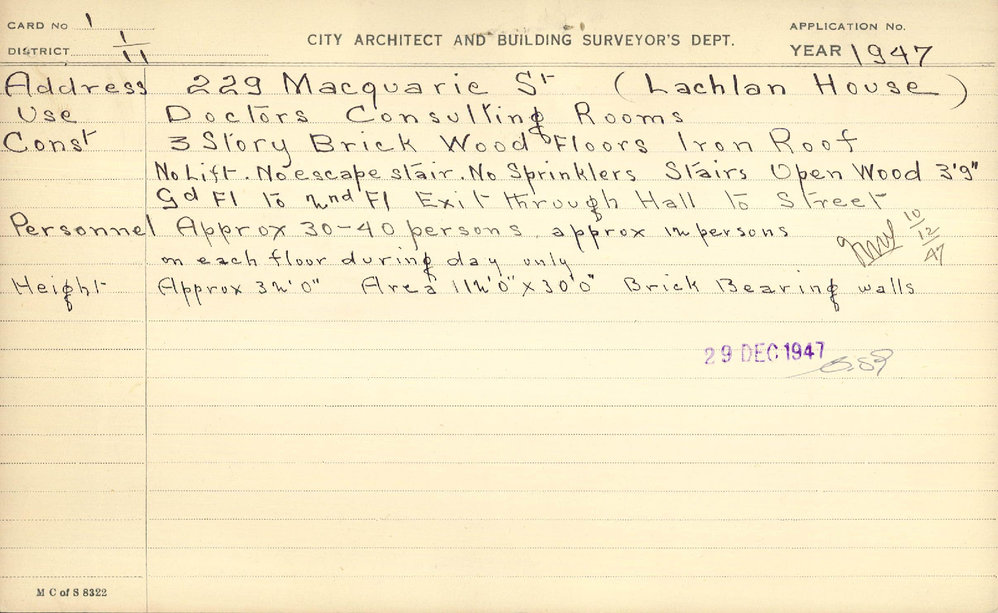 CARD No 1
DISTRICT 1/11
CITY ARCHITECT AND BUILDING SURVEYOR'S DEPT.
APPLICATION No.
YEAR 1947
Address 229 Macquarie St (Lachlan House)
Use Doctors Consulting Rooms
Const 3 Story Brick Wood Floors Iron Roof
No Lift. No escape stair. No Sprinklers Stairs Open Wood 3'9"
Gd Fl to 2nd Fl Exit through Hall to Street
Personnel Approx 30-40 persons approx 12 persons
on each floor during day only
10/12/47
Height Approx 32'0" Area 112'0" x 30'0" Brick Bearing walls
29 DEC 1947
M C of S 8322